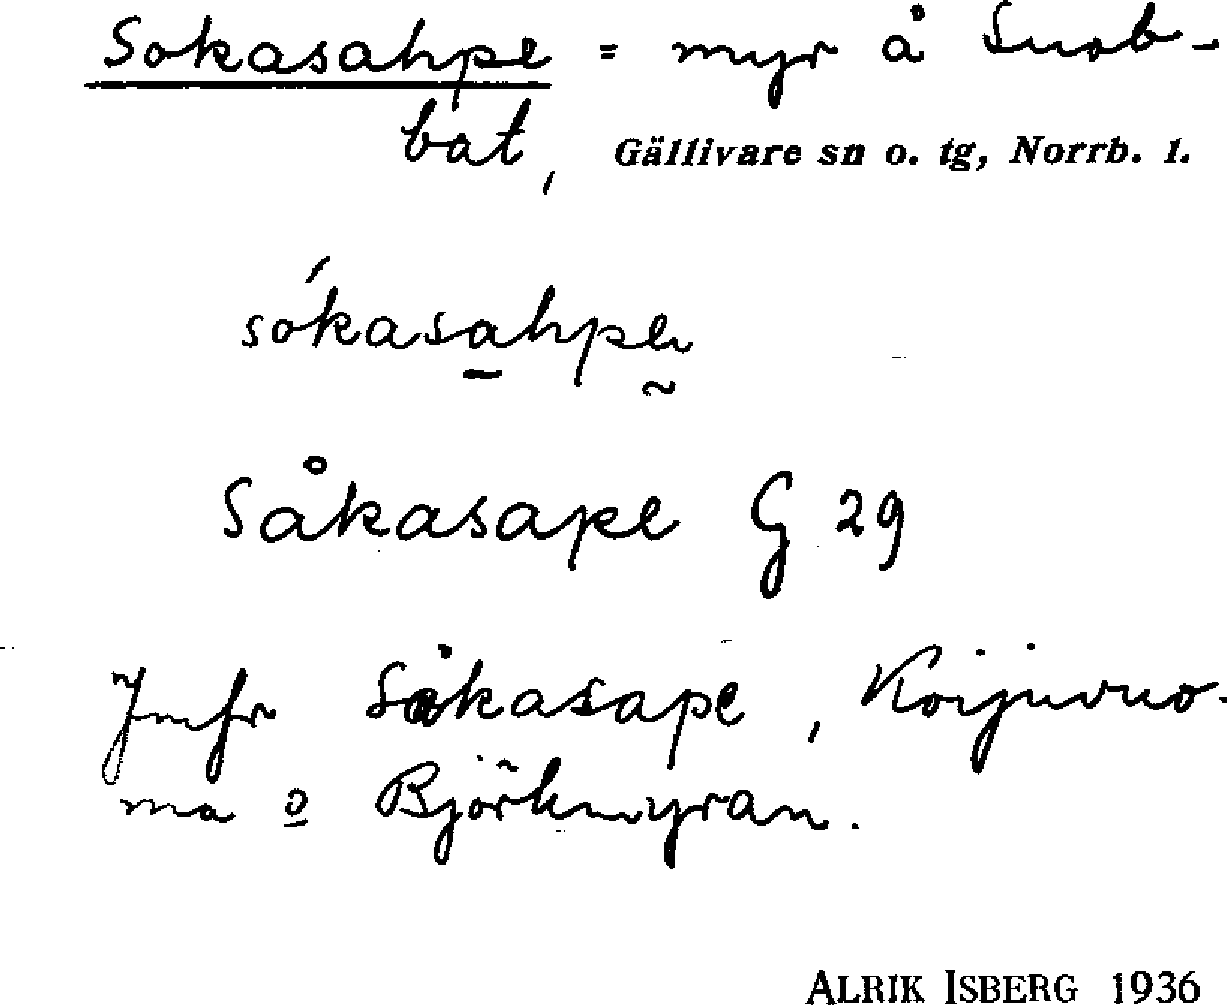 Sokasahpe = myr å Suob-
bat, Gällivare sn o. tg, Norrb. l.
sókasahpe
Såkasape G 29
Jmfr Såkasape, Koijuvuo-
ma o Björkmyran.
ALRIK ISBERG 1936